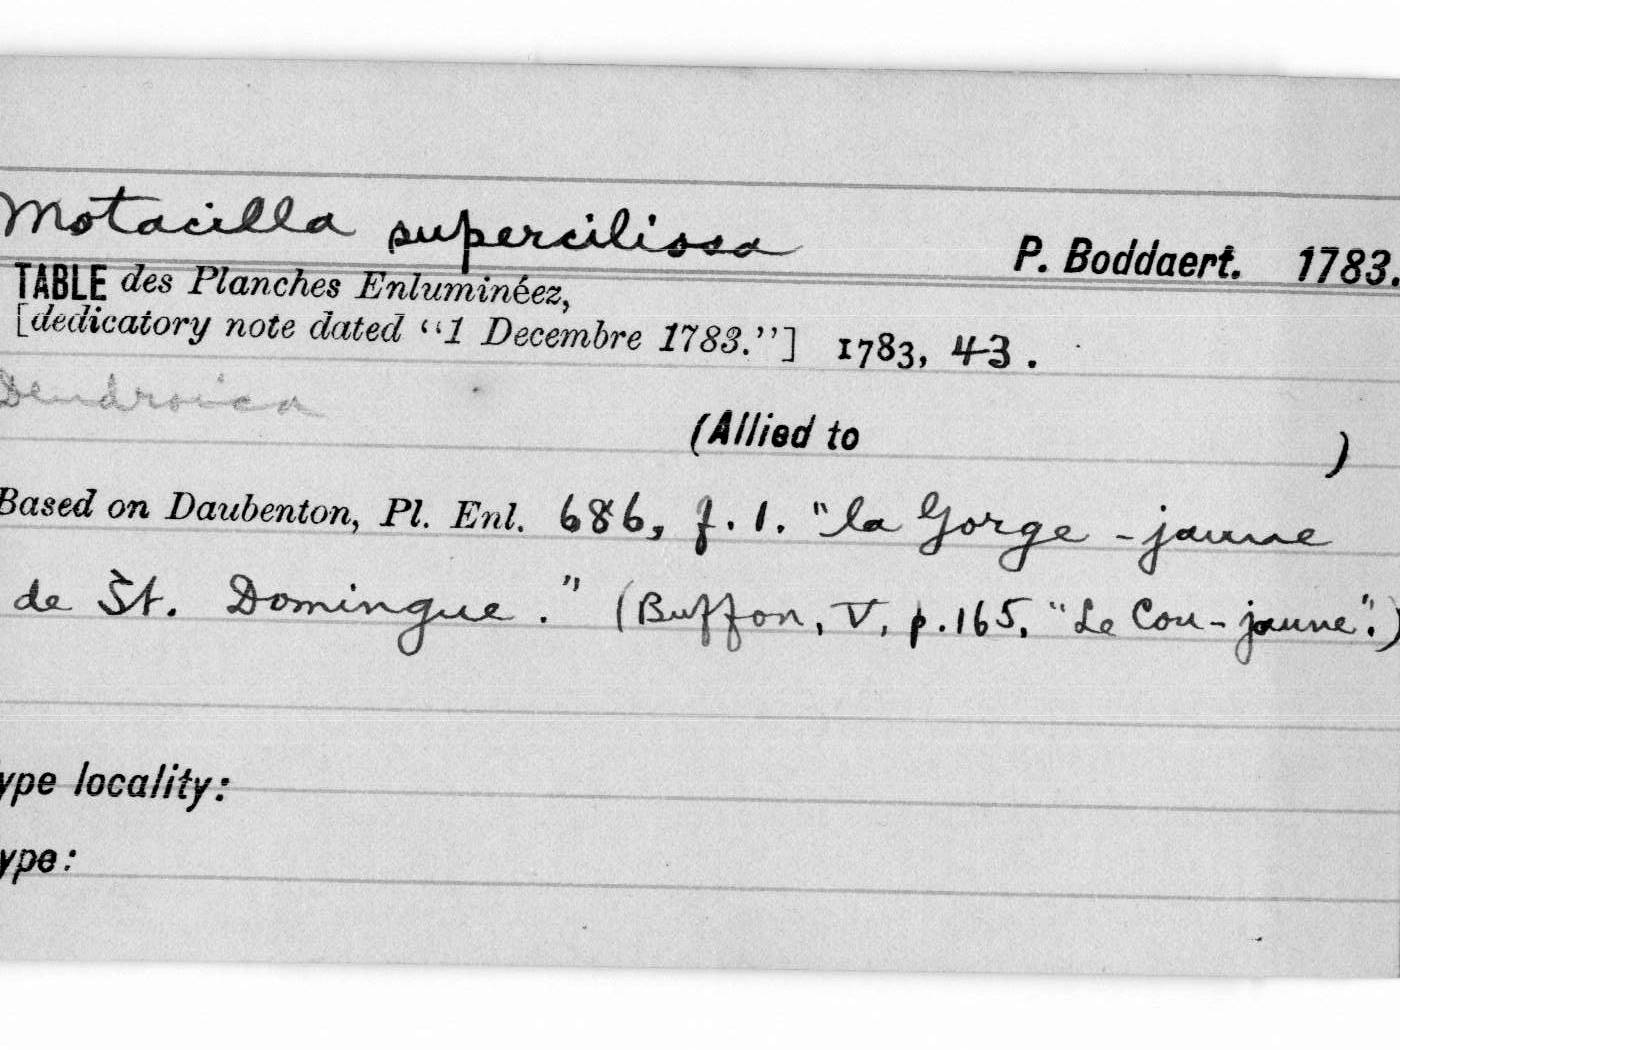 Motacilla supercilissa P. Boddaert. 1783.
TABLE des Planches Enluminéez,
[dedicatory note dated “1 Decembre 1783.”] 1783, 43.
Dendroica
(Allied to )
Based on Daubenton, Pl. Enl. 686, f. 1. "la Gorge-jaune
de St. Domingue." (Buffon, V, p.165, "Le Cou-jaune".)
ype locality:
ype: